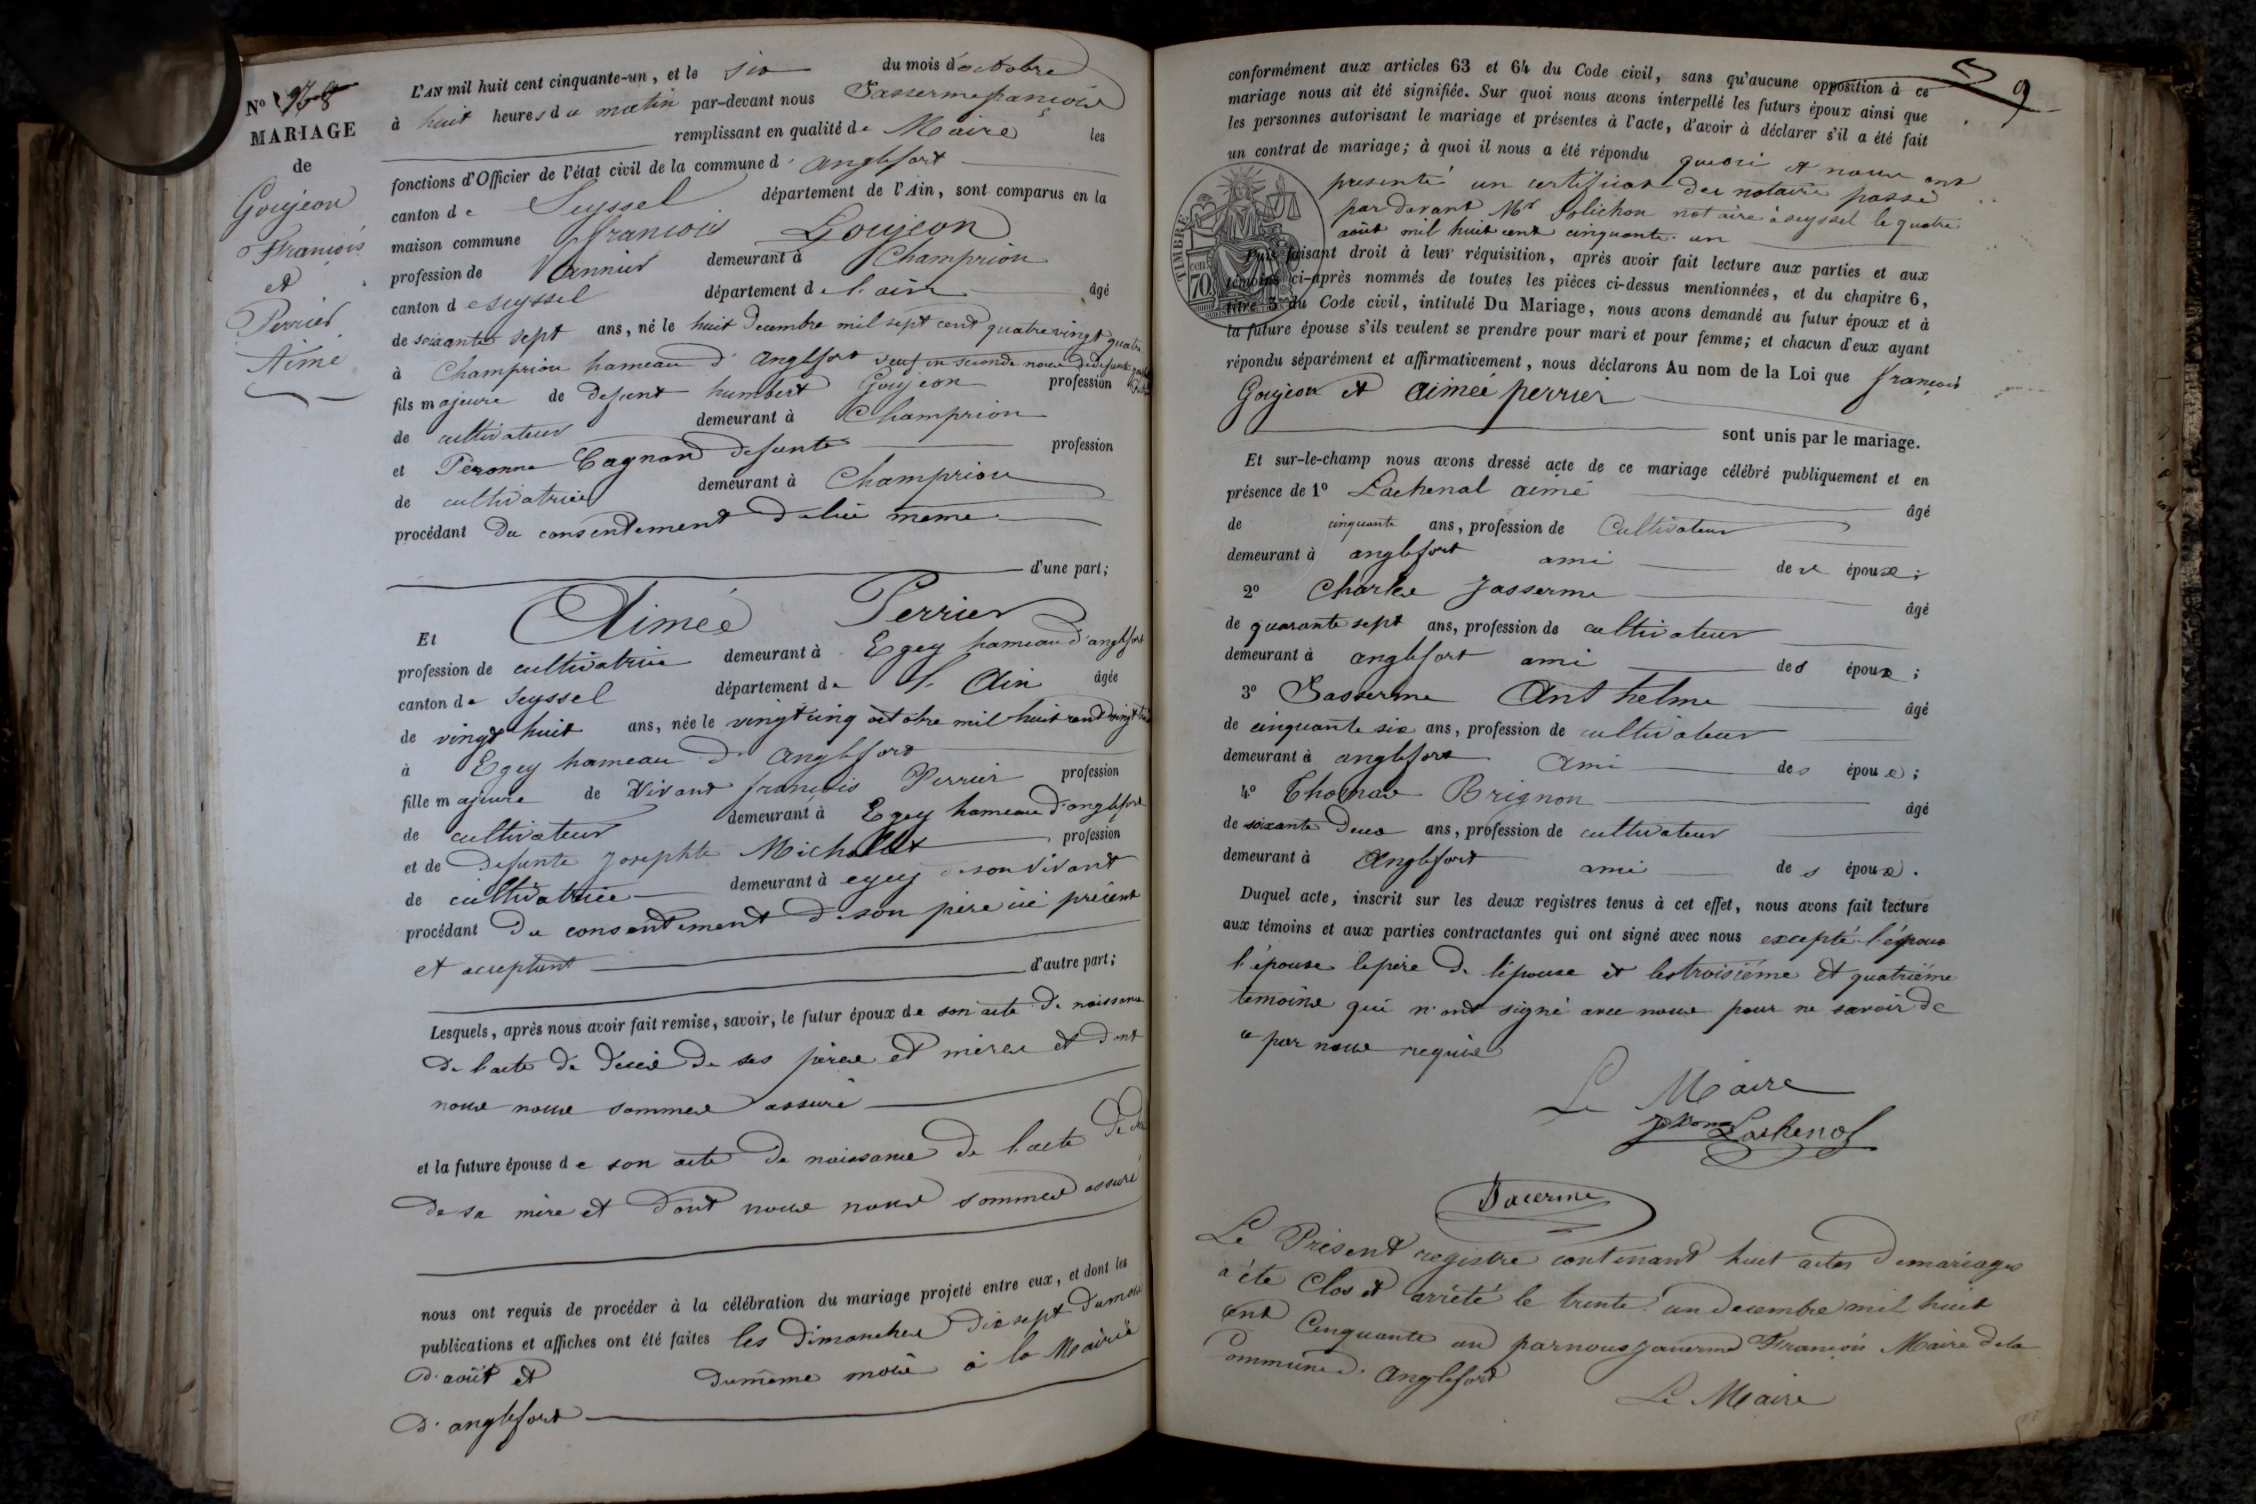 N° 8
MARIAGE
de
Goujeon
François
et
Perrier
Aimé
L'AN mil huit cent cinquante-un, et le six du mois d'octobre
à huit heures du matin par-devant nous Jasserme françois
remplissant en qualité de Maire les
fonctions d'Officier de l'état civil de la commune d' anglefort
canton de Seyssel département de l'Ain, sont comparus en la
maison commune françois Goujeon
profession de Vannier demeurant à Champrion
canton de seyssel département de l'ain âgé
de soixante sept ans, né le huit Decembre mil sept cent quatre vingt quatre
à Champrion hameau d' anglefort veuf en seconde noce de defunte
fils majeure de defunt humbert Goujeon profession
de cultivateur demeurant à Champrion
et Peronne Cagnon defunte profession
de cultivatrice demeurant à Champrion
procédant Du consentement De lui meme
d'une part;
Et Aimée Perrier
profession de cultivatrice demeurant à Egey hameau d'anglefort
canton de Seyssel département de l'Ain âgée
de vingt huit ans, née le vingt cinq octobre mil huit cent vingt
à Egey hameau D' anglefort
fille majeure de Vivant françois Perrier profession
de cultivateur demeurant à Egey hameau d'anglefort
et de Defunte Josephte Michallet profession
de cultivatrice demeurant à egey de son vivant
procédant Du consentement De son père ici présent
et acceptant
d'autre part;
Lesquels, après nous avoir fait remise, savoir, le futur époux de son acte De naissance
De l'acte De Décès De ses pères et mères et dont
nous nous sommes assuré
et la future épouse de son acte De naissance De l'acte De
De sa mère et Dont nous nous sommes assuré
nous ont requis de procéder à la célébration du mariage projeté entre eux, et dont les
publications et affiches ont été faites les Dimanches Dix sept Du mois
D'août et Du même mois à la Mairie
D'anglefort
9
conformément aux articles 63 et 64 du Code civil, sans qu'aucune opposition à ce
mariage nous ait été signifiée. Sur quoi nous avons interpellé les futurs époux ainsi que
les personnes autorisant le mariage et présentes à l'acte, d'avoir à déclarer s'il a été fait
un contrat de mariage; à quoi il nous a été répondu que oui et nous ont
presenté un certificat du notaire passé
par Devant Mr Jolichon notaire à seyssel le quatre
août mil huit cent cinquante un
TIMBRE
70 cent
Puis faisant droit à leur réquisition, après avoir fait lecture aux parties et aux
témoins ci-après nommés de toutes les pièces ci-dessus mentionnées, et du chapitre 6,
titre 5 du Code civil, intitulé Du Mariage, nous avons demandé au futur époux et à
la future épouse s'ils veulent se prendre pour mari et pour femme; et chacun d'eux ayant
répondu séparément et affirmativement, nous déclarons Au nom de la Loi que françois
Goujeon et Aimée perrier
sont unis par le mariage.
Et sur-le-champ nous avons dressé acte de ce mariage célébré publiquement et en
présence de 1° Lachenal aimé âgé
de cinquante ans, profession de Cultivateur
demeurant à anglefort ami des époux;
2° Charles Jasserme âgé
de quarante sept ans, profession de cultivateur
demeurant à anglefort ami des époux;
3° Jasserme Anthelme âgé
de cinquante six ans, profession de cultivateur
demeurant à anglefort ami des époux;
4° Thomas Brignon âgé
de soixante Deux ans, profession de cultivateur
demeurant à Anglefort ami des époux.
Duquel acte, inscrit sur les deux registres tenus à cet effet, nous avons fait lecture
aux témoins et aux parties contractantes qui ont signé avec nous excepté l'époux
l'épouse le père De l'épouse et les troisième et quatrième
témoins qui n'ont signé avec nous pour ne savoir De
ce par nous requis
Le Maire
Lachenal
Jacerme
Le Présent registre contenant huit actes De mariages
a été Clos et arrêté le trente un decembre mil huit
cent Cinquante un par nous Jacerme François Maire de la
Commune d'Anglefort
Le Maire